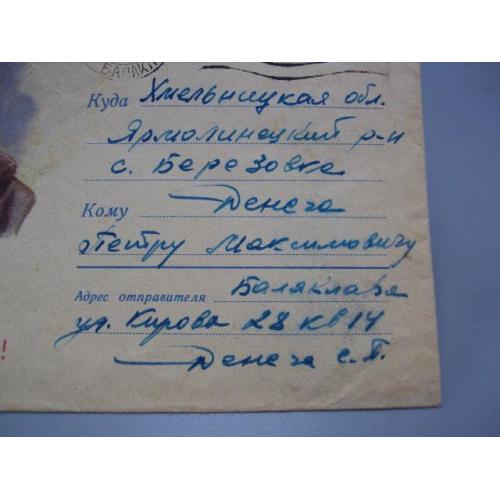 БАЛАКЛ
Куда Хмельницкая обл.
Ярмолинецкий р-н
с. Березовка
Кому Денега
Петру Максимовичу
Адрес отправителя Балаклава
ул. Кирова 28 кв 14
Денега С.П.
!